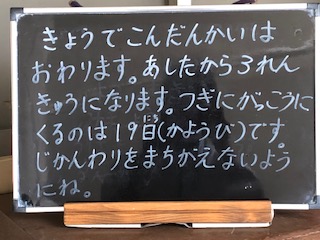 きょうでこんだんかいは
おわります。あしたから3れん
きゅうになります。つぎにがっこうに
くるのは19日(にち)(かようび)です。
じかんわりをまちがえないよう
にね。